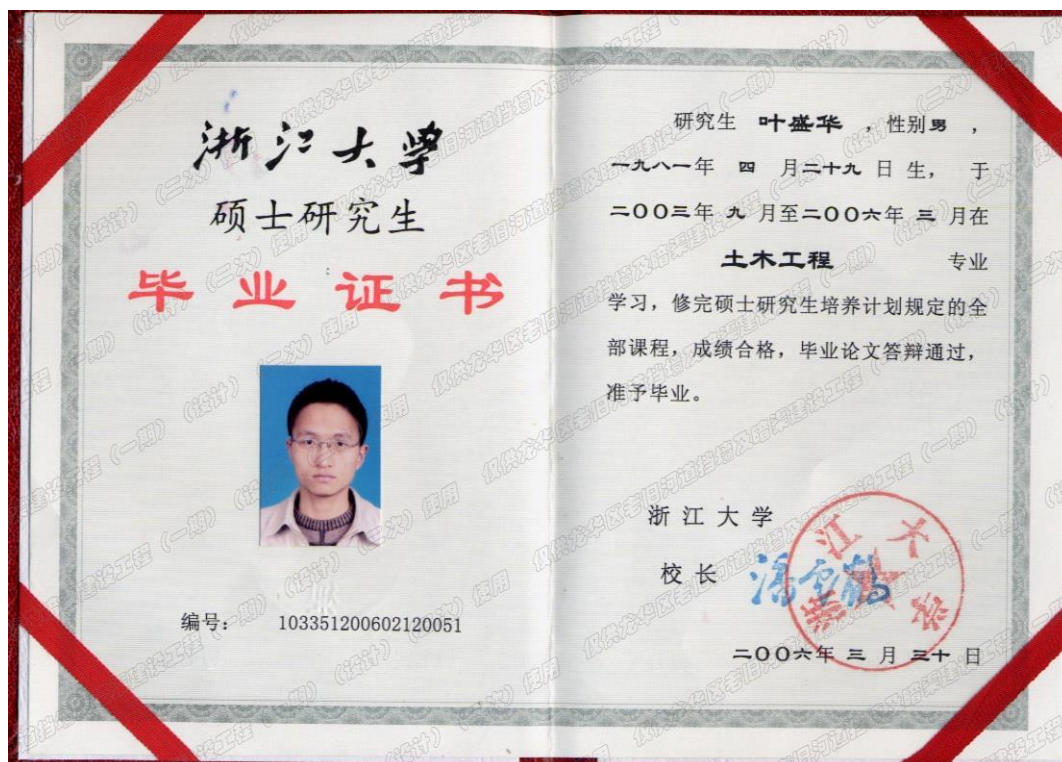 浙江大学
硕士研究生
毕业证书
编号： 103351200602120051
研究生 叶盛华 ，性别男 ，
一九八一年 四 月二十九 日 生， 于
二〇〇三年 九 月至二〇〇六年 三 月在
土木工程 专业
学习，修完硕士研究生培养计划规定的全
部课程，成绩合格，毕业论文答辩通过，
准予毕业。
浙江大学
校长 潘云鹤
浙江大学
二〇〇六年 三 月 三十 日
仅供龙华区老旧河道挡墙及暗渠建设工程（一期）（设计）（二次）使用